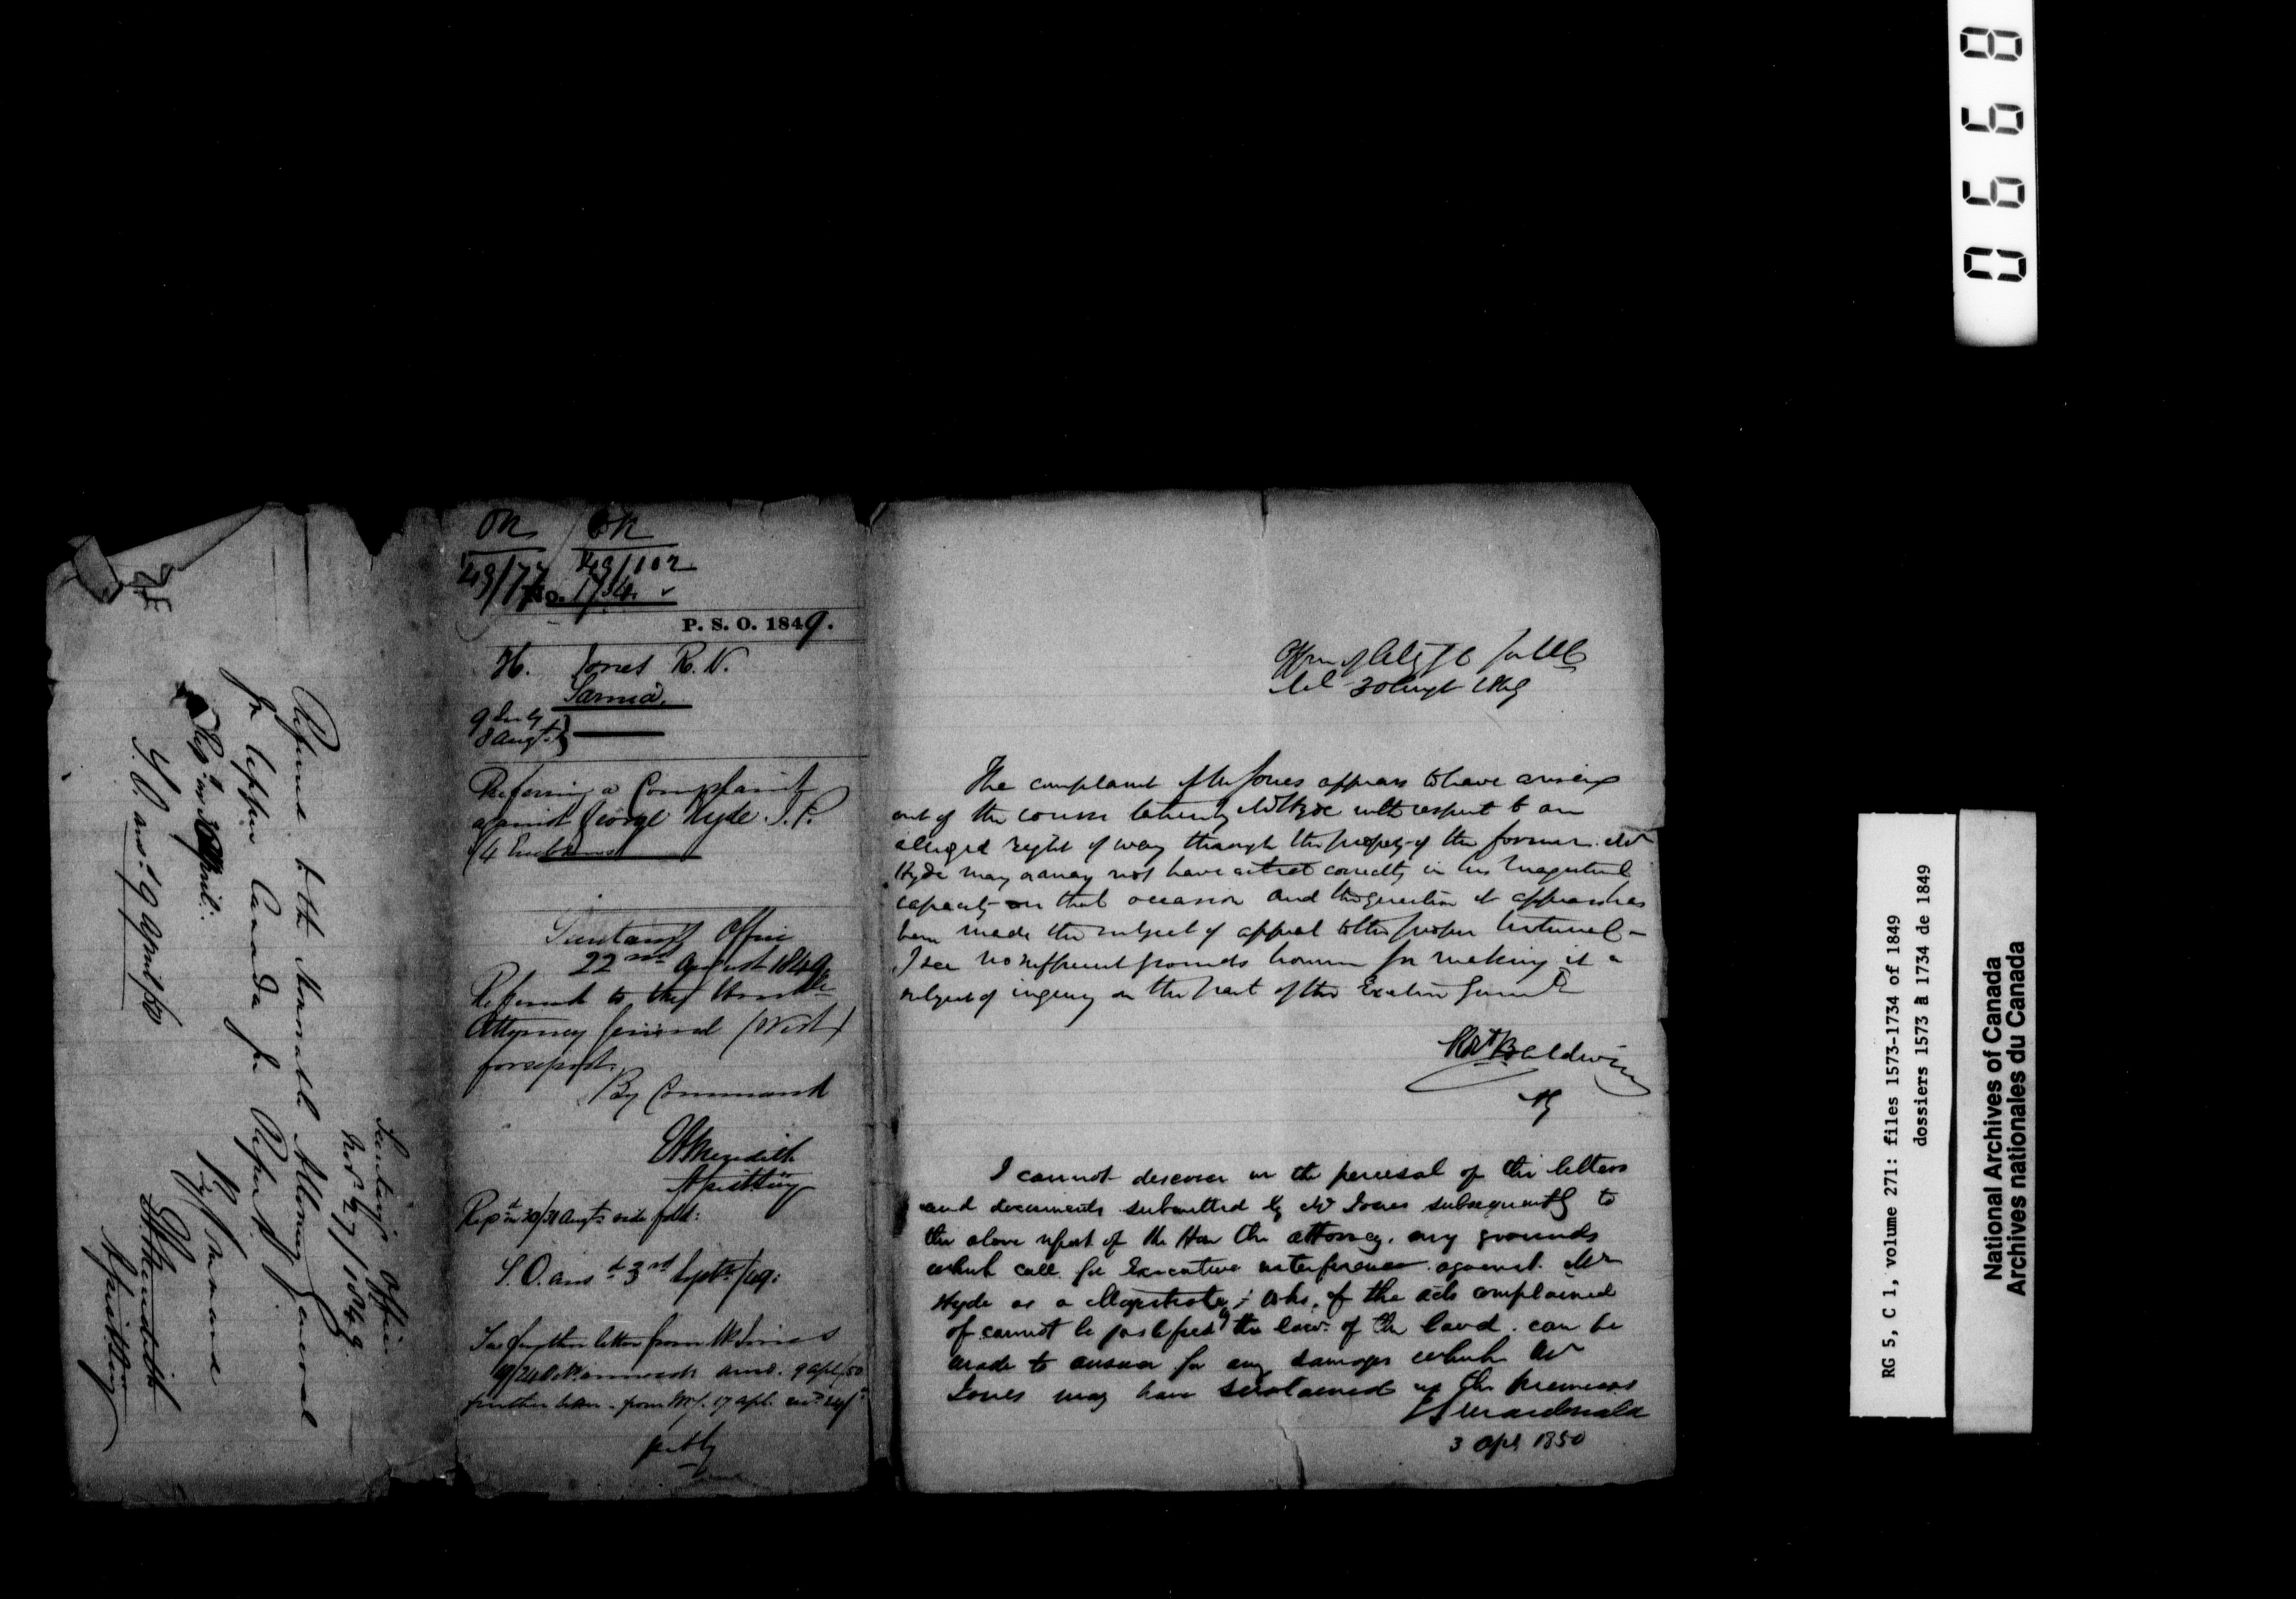 Referred to the Honorable Attorney General
for Upper Canada for Report
By Command
E A Meredith
Asst Secy
Secretary's Office
Nov. 27 / 1849.
Rep. in April.
S.O. ansd 9 April /50
No. 1734.
49/77
49/102
P. S. O. 1849.
H. Jones R. N.
Sarnia.
9 July
8 Augt.
Referring a Complaint
against George Hyde J.P.
/4 Enclosures
Secretary's Office
22nd August 1849
Referred to the Honble
Attorney General (West)
for report.
By Command
E A Meredith
Asst Secy
Rept in 30/31 Augt. vide fold:
S.O. ansd 3rd Septr /49:
See further letter from Mr Jones
ansd. 9 apl /50
further letter from Mr J. 17 apl.
Office of Atty G for UC
Mtl 30 Augt 1849
The complaint of Mr Jones appears to have arisen
out of the course taken by Mr Hyde with respect to an
alleged right of way through the property of the former. Mr
Hyde may or may not have acted correctly in his Magisterial
capacity on that occasion and the question it appears has
been made the subject of appeal to the proper tribunal -
I see no sufficient grounds however for making it a
subject of inquiry on the part of the Executive Governmt
Robt Baldwin
AG
I cannot discover in the perusal of the letters
and documents submitted by Mr Jones subsequently to
the above report of the Hon the Attorney. any grounds
which call for Executive interference against Mr
Hyde as a Magistrate; who, if the acts complained
of cannot be justified by the laws of the land. can be
made to answer for any damages which Mr
Jones may have sustained in the premises
J S Macdonald
3 Apl 1850
0668
RG 5, C 1, volume 271: files 1573-1734 of 1849
dossiers 1573 à 1734 de 1849
National Archives of Canada
Archives nationales du Canada